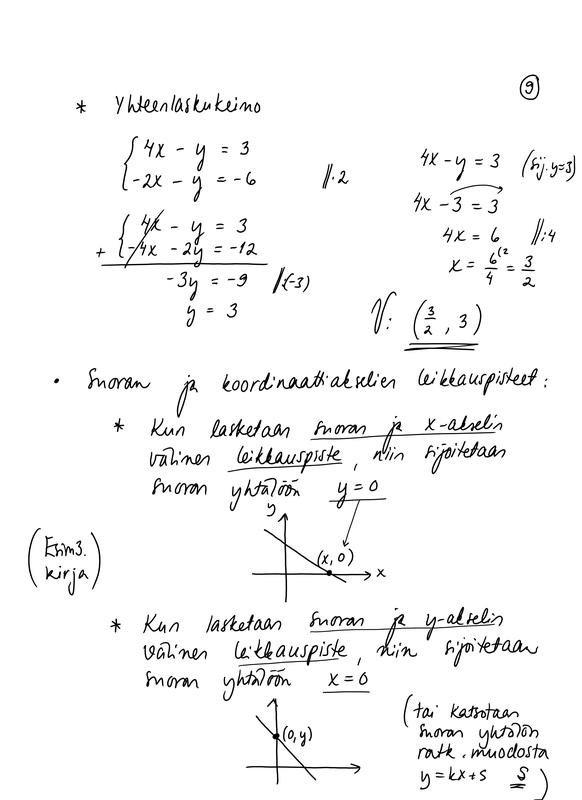 9
* Yhteenlaskukeino
{ 4x - y = 3
{ -2x - y = -6 ‖·2
+ { 4x - y = 3
{ -4x - 2y = -12
-3y = -9 ‖:(-3)
y = 3
4x - y = 3 (sij. y=3)
4x - 3 = 3
4x = 6 ‖:4
x = 6/4 (2 = 3/2
V: (3/2, 3)
• Suoran ja koordinaattiakselien leikkauspisteet:
* Kun lasketaan suoran ja x-akselin
välinen leikkauspiste, niin sijoitetaan
suoran yhtälöön y = 0
y
(x, 0)
x
(Esim3.
kirja)
* Kun lasketaan suoran ja y-akselin
välinen leikkauspiste, niin sijoitetaan
suoran yhtälöön x = 0
(0, y)
(tai katsotaan
suoran yhtälön
ratk. muodosta
y = kx + s s)